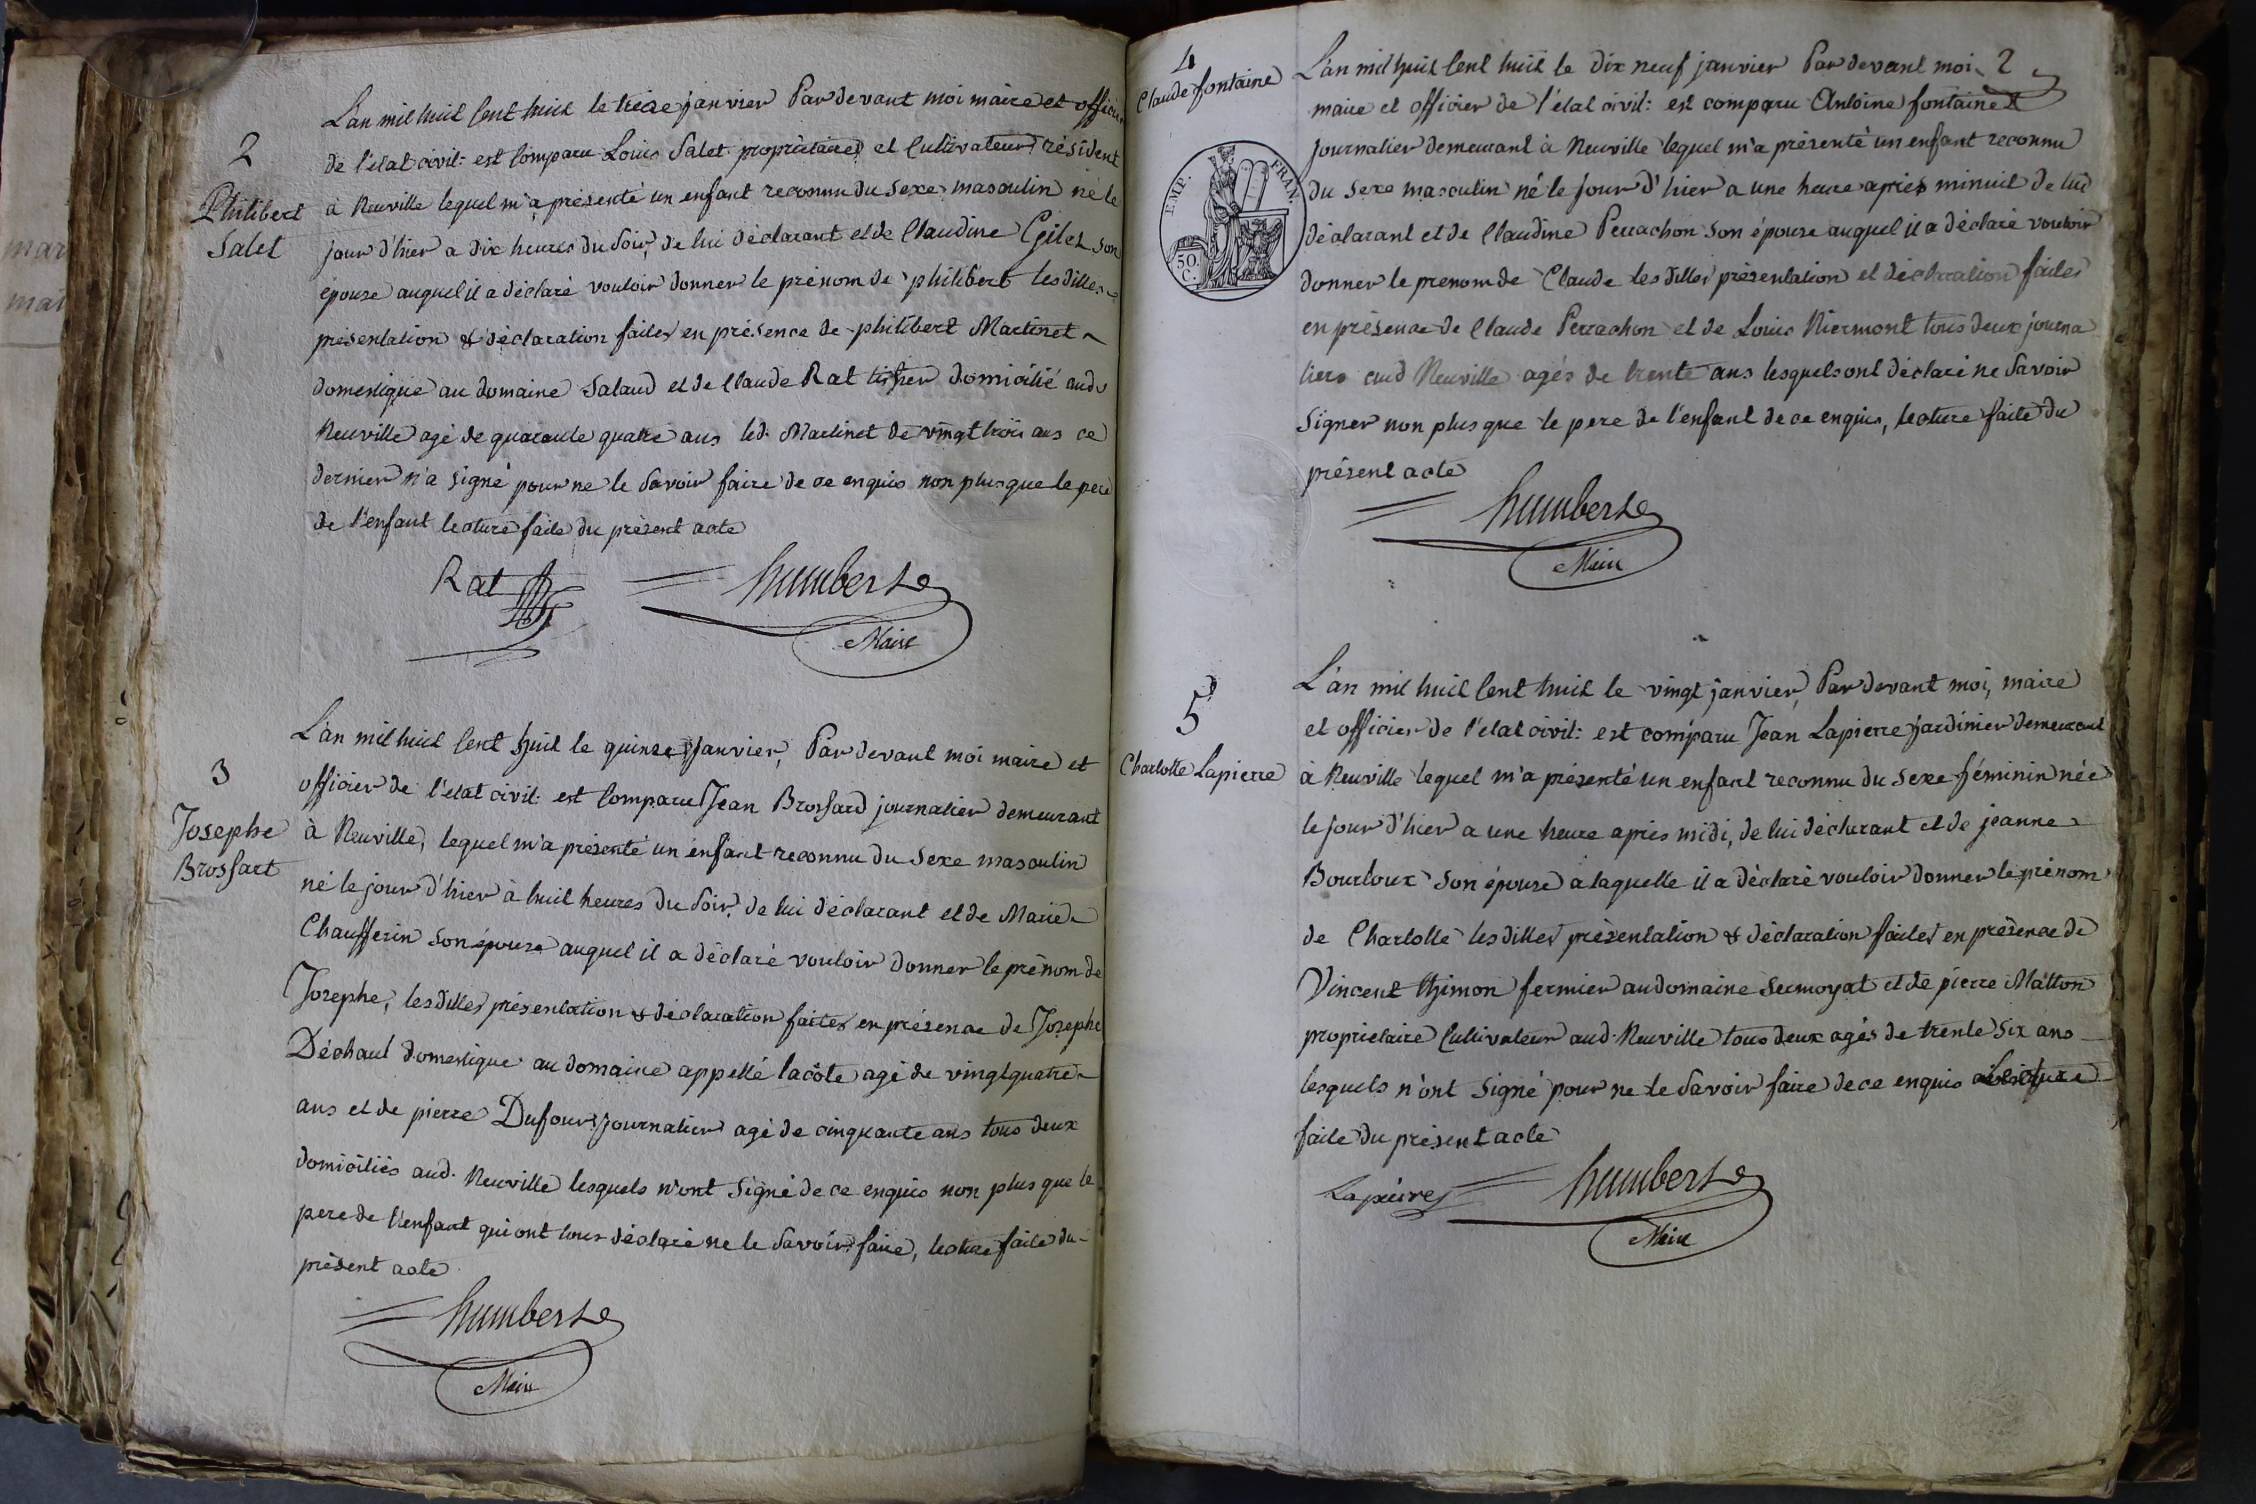 2
Philibert
Salet
L'an mil huit cent huit le treize janvier Par devant moi maire et officier
de l'état civil: est comparu Louis Salet propriétaire et Cultivateur résident
à Neuville lequel m'a présenté un enfant reconnu du sexe masculin né le
jour d'hier a dix heures du soir, de lui déclarant et de Claudine Gilet son
épouse auquel il a déclaré vouloir donner le prénom de philibert lesdittes
présentation & déclaration faites en présence de philibert Martinet
domestique au domaine Salaud et de Claude Rat tissier domicilié aud.
Neuville agé de quarante quatre ans led. Martinet de vingt trois ans ce
dernier n'a signé pour ne le savoir faire de ce enquis non plus que le pere
de l'enfant lecture faite du présent acte
Rat humbert
Maire
3
Josephe
Brossart
L'an mil huit cent huit le quinze janvier, Par devant moi maire et
officier de l'état civil: est comparu Jean Brossard journalier demeurant
à Neuville, lequel m'a présenté un enfant reconnu du sexe masculin
né le jour d'hier à huit heures du soir, de lui déclarant et de Marie
Chaufferin son épouse auquel il a déclaré vouloir donner le prénom de
Josephe, lesdittes présentation & déclaration faites en présence de Josephe
Déchaut domestique au domaine appellé lacôte agé de vingt quatre
ans et de pierre Dufour journalier agé de cinquante ans tous deux
domiciliés aud. Neuville lesquels n'ont signé de ce enquis non plus que le
pere de l'enfant qui ont tous déclaré ne le savoir faire, lecture faite du
présent acte
humbert
Maire
4
Claude fontaine
EMP. FRAN.
50.
C.
2
L'an mil huit cent huit le dix neuf janvier Par devant moi
maire et officier de l'état civil: est comparu Antoine fontaine
journalier demeurant à Neuville lequel m'a présenté un enfant reconnu
du sexe masculin né le jour d'hier a une heure après minuit de lui
déclarant et de Claudine Perrachon son épouse auquel il a déclaré vouloir
donner le prenom de Claude lesdittes présentation et déclaration faites
en présence de Claude Perrachon et de Louis Niermont tous deux journa
liers aud Neuville agés de trente ans lesquels ont déclaré ne savoir
signer non plus que le pere de l'enfant de ce enquis, lecture faite du
présent acte
humbert
Maire
5
Charlotte Lapierre
L'an mil huit cent huit le vingt janvier, Par devant moi, maire
et officier de l'état civil: est comparu Jean Lapierre jardinier demeurant
à Neuville lequel m'a présenté un enfant reconnu du sexe féminin née
le jour d'hier a une heure après midi, de lui déclarant et de jeanne
Bourloux son épouse a laquelle il a déclaré vouloir donner le prénom
de Charlotte lesdittes présentation & déclaration faites en présence de
Vincent Thimon fermier au domaine Sermoyat et de pierre Matton
propriétaire Cultivateur aud. Neuville tous deux agés de trente six ans
lesquels n'ont signé pour ne le savoir faire de ce enquis lecture
faite du présent acte
Lapierre humbert
Maire